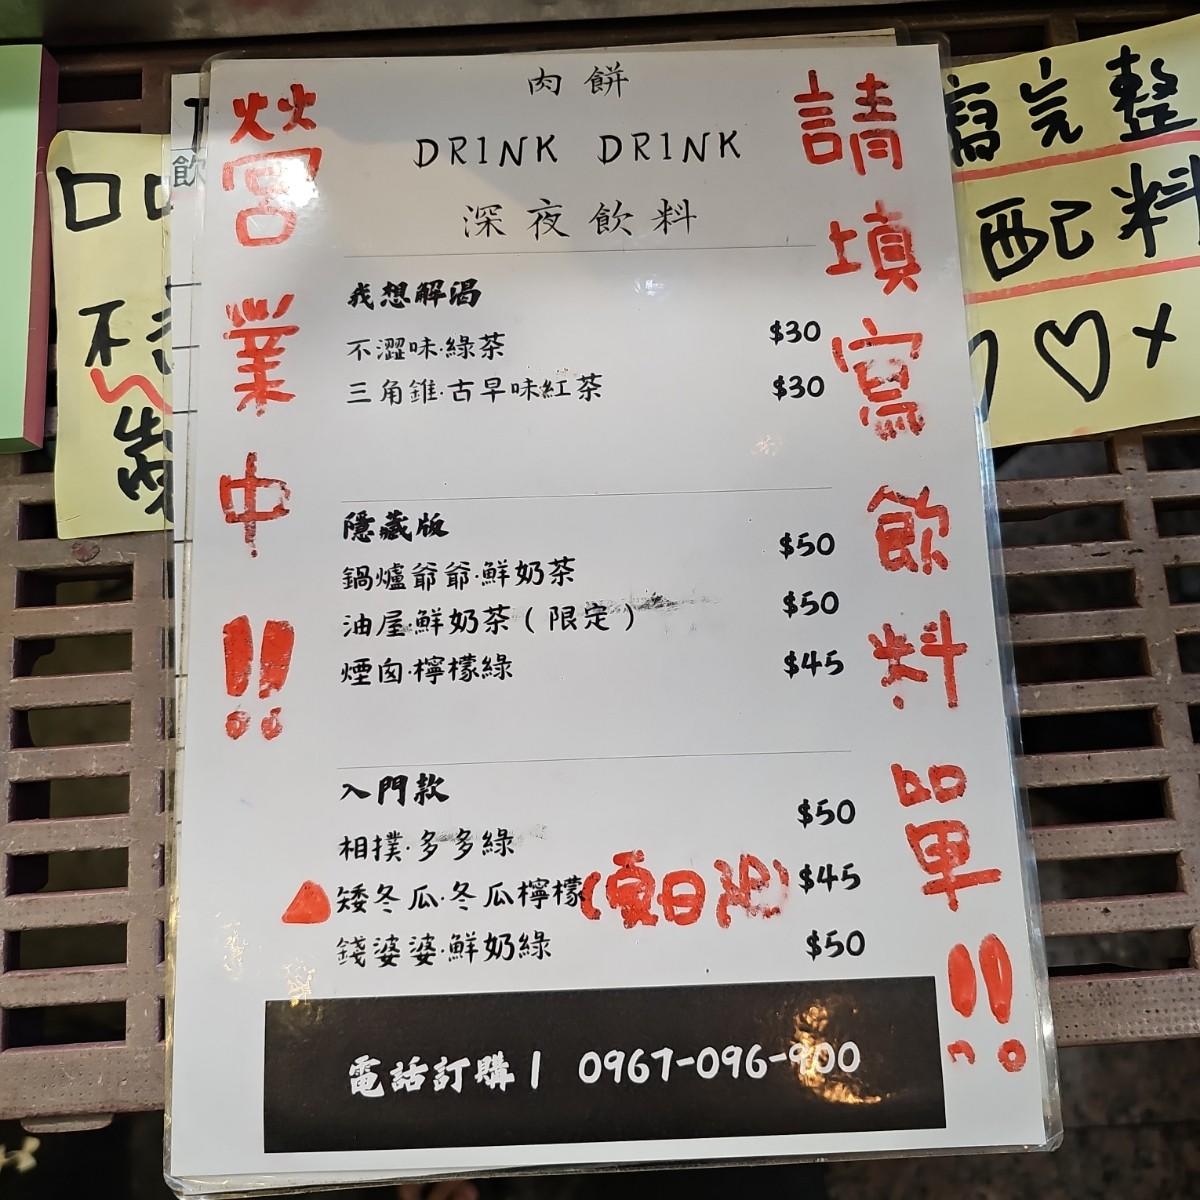 肉餅
DRINK DRINK
深夜飲料
營業中!!
請填寫飲料單!!
我想解渴
不澀味·綠茶 $30
三角錐·古早味紅茶 $30
隱藏版
鍋爐爺爺·鮮奶茶 $50
油屋·鮮奶茶(限定) $50
煙囪·檸檬綠 $45
入門款
相撲·多多綠 $50
矮冬瓜·冬瓜檸檬(夏日 $45
錢婆婆·鮮奶綠 $50
電話訂購| 0967-096-900
飲
口
不
寫完整
配料
♡×